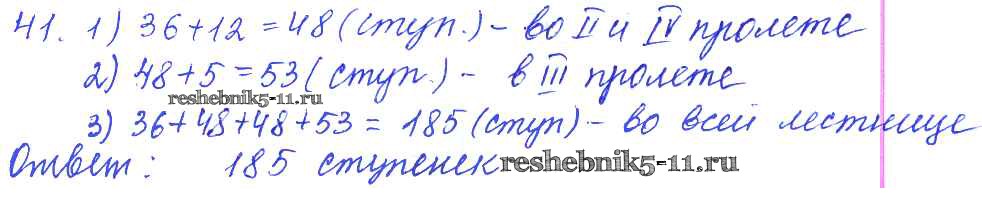 41. 1) 36+12=48 (ступ.) - во II и IV пролете
2) 48+5=53 (ступ.) - в III пролете
reshebnik5-11.ru
3) 36+48+48+53 = 185 (ступ) - во всей лестнице
Ответ: 185 ступенек
reshebnik5-11.ru